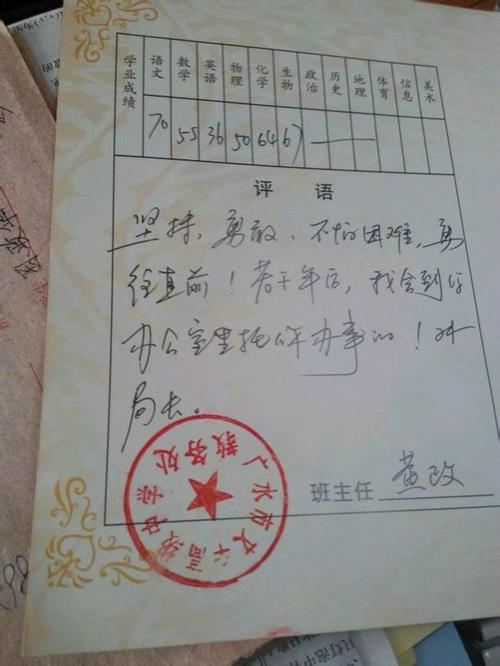 学业成绩 语文 数学 英语 物理 化学 生物 政治 历史 地理 体育 信息 美术
70 55 36 50 64 67
评 语
坚持、勇敢、不怕困难,勇
往直前!若干年后,我会到你
办公室里托你办事的!叶
局长。
广水市文华高级中学
教务处
班主任 黄政